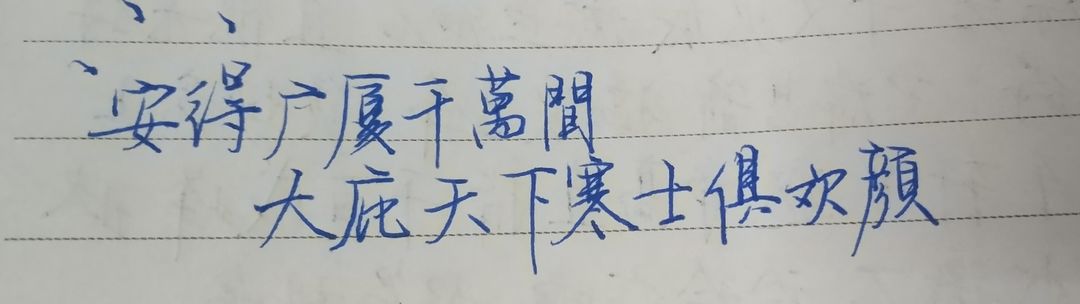 安得广厦千萬間
大庇天下寒士俱欢顔